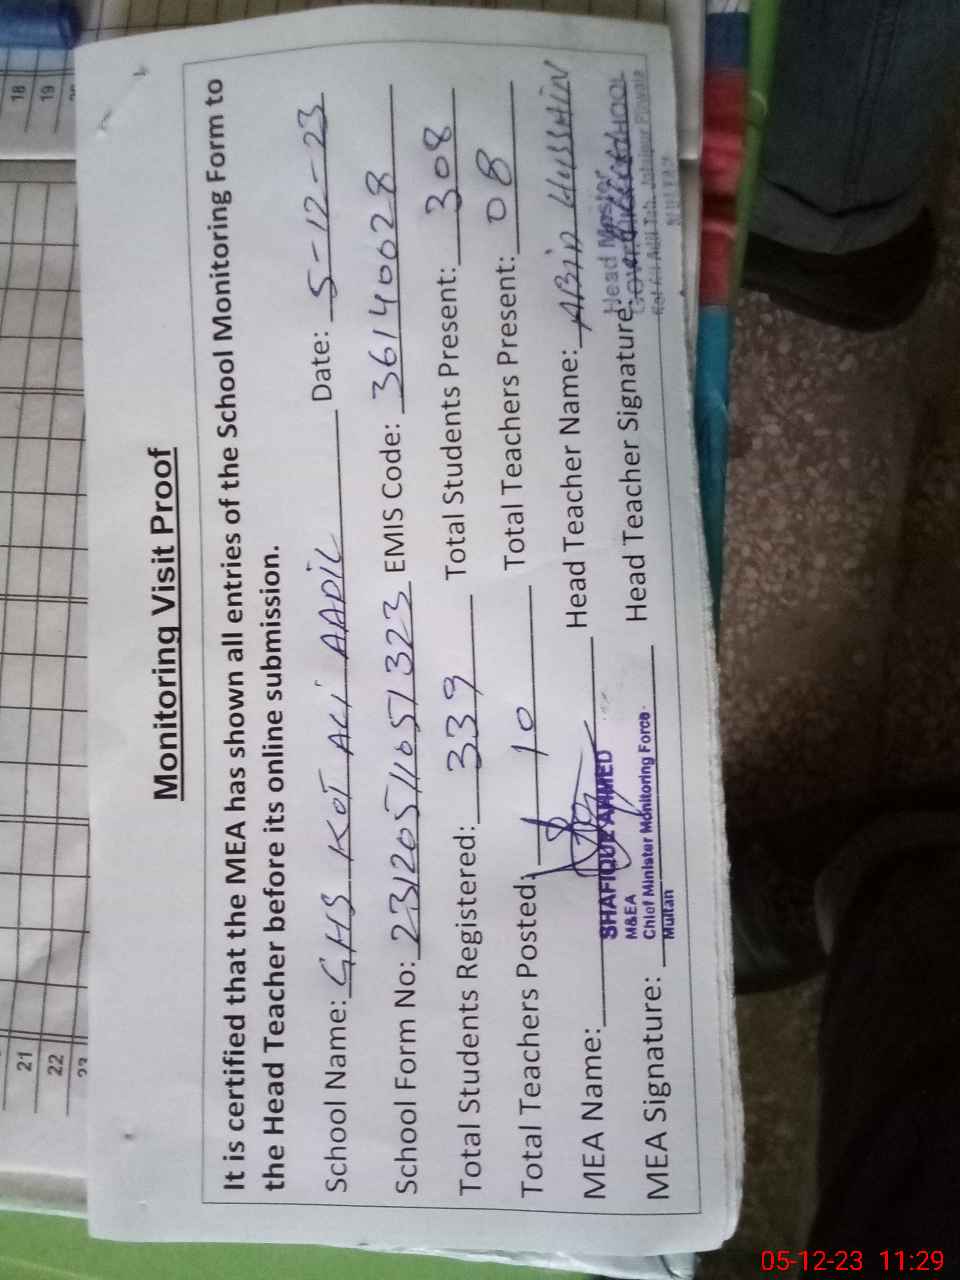 18
19
21
22
23
Monitoring Visit Proof
It is certified that the MEA has shown all entries of the School Monitoring Form to
the Head Teacher before its online submission.
School Name: GHS KOT ALI AADIL Date: 5-12-23
School Form No: 23120511051323 EMIS Code: 36140028
Total Students Registered: 339 Total Students Present: 308
Total Teachers Posted: 10 Total Teachers Present: 08
MEA Name: Head Teacher Name: ABID HUSSAIN
SHAFIQUE AHMED
M&EA
Chief Minister Monitoring Force
Multan
MEA Signature: Head Teacher Signature:
Head Master
SCHOOL
05-12-23 11:29